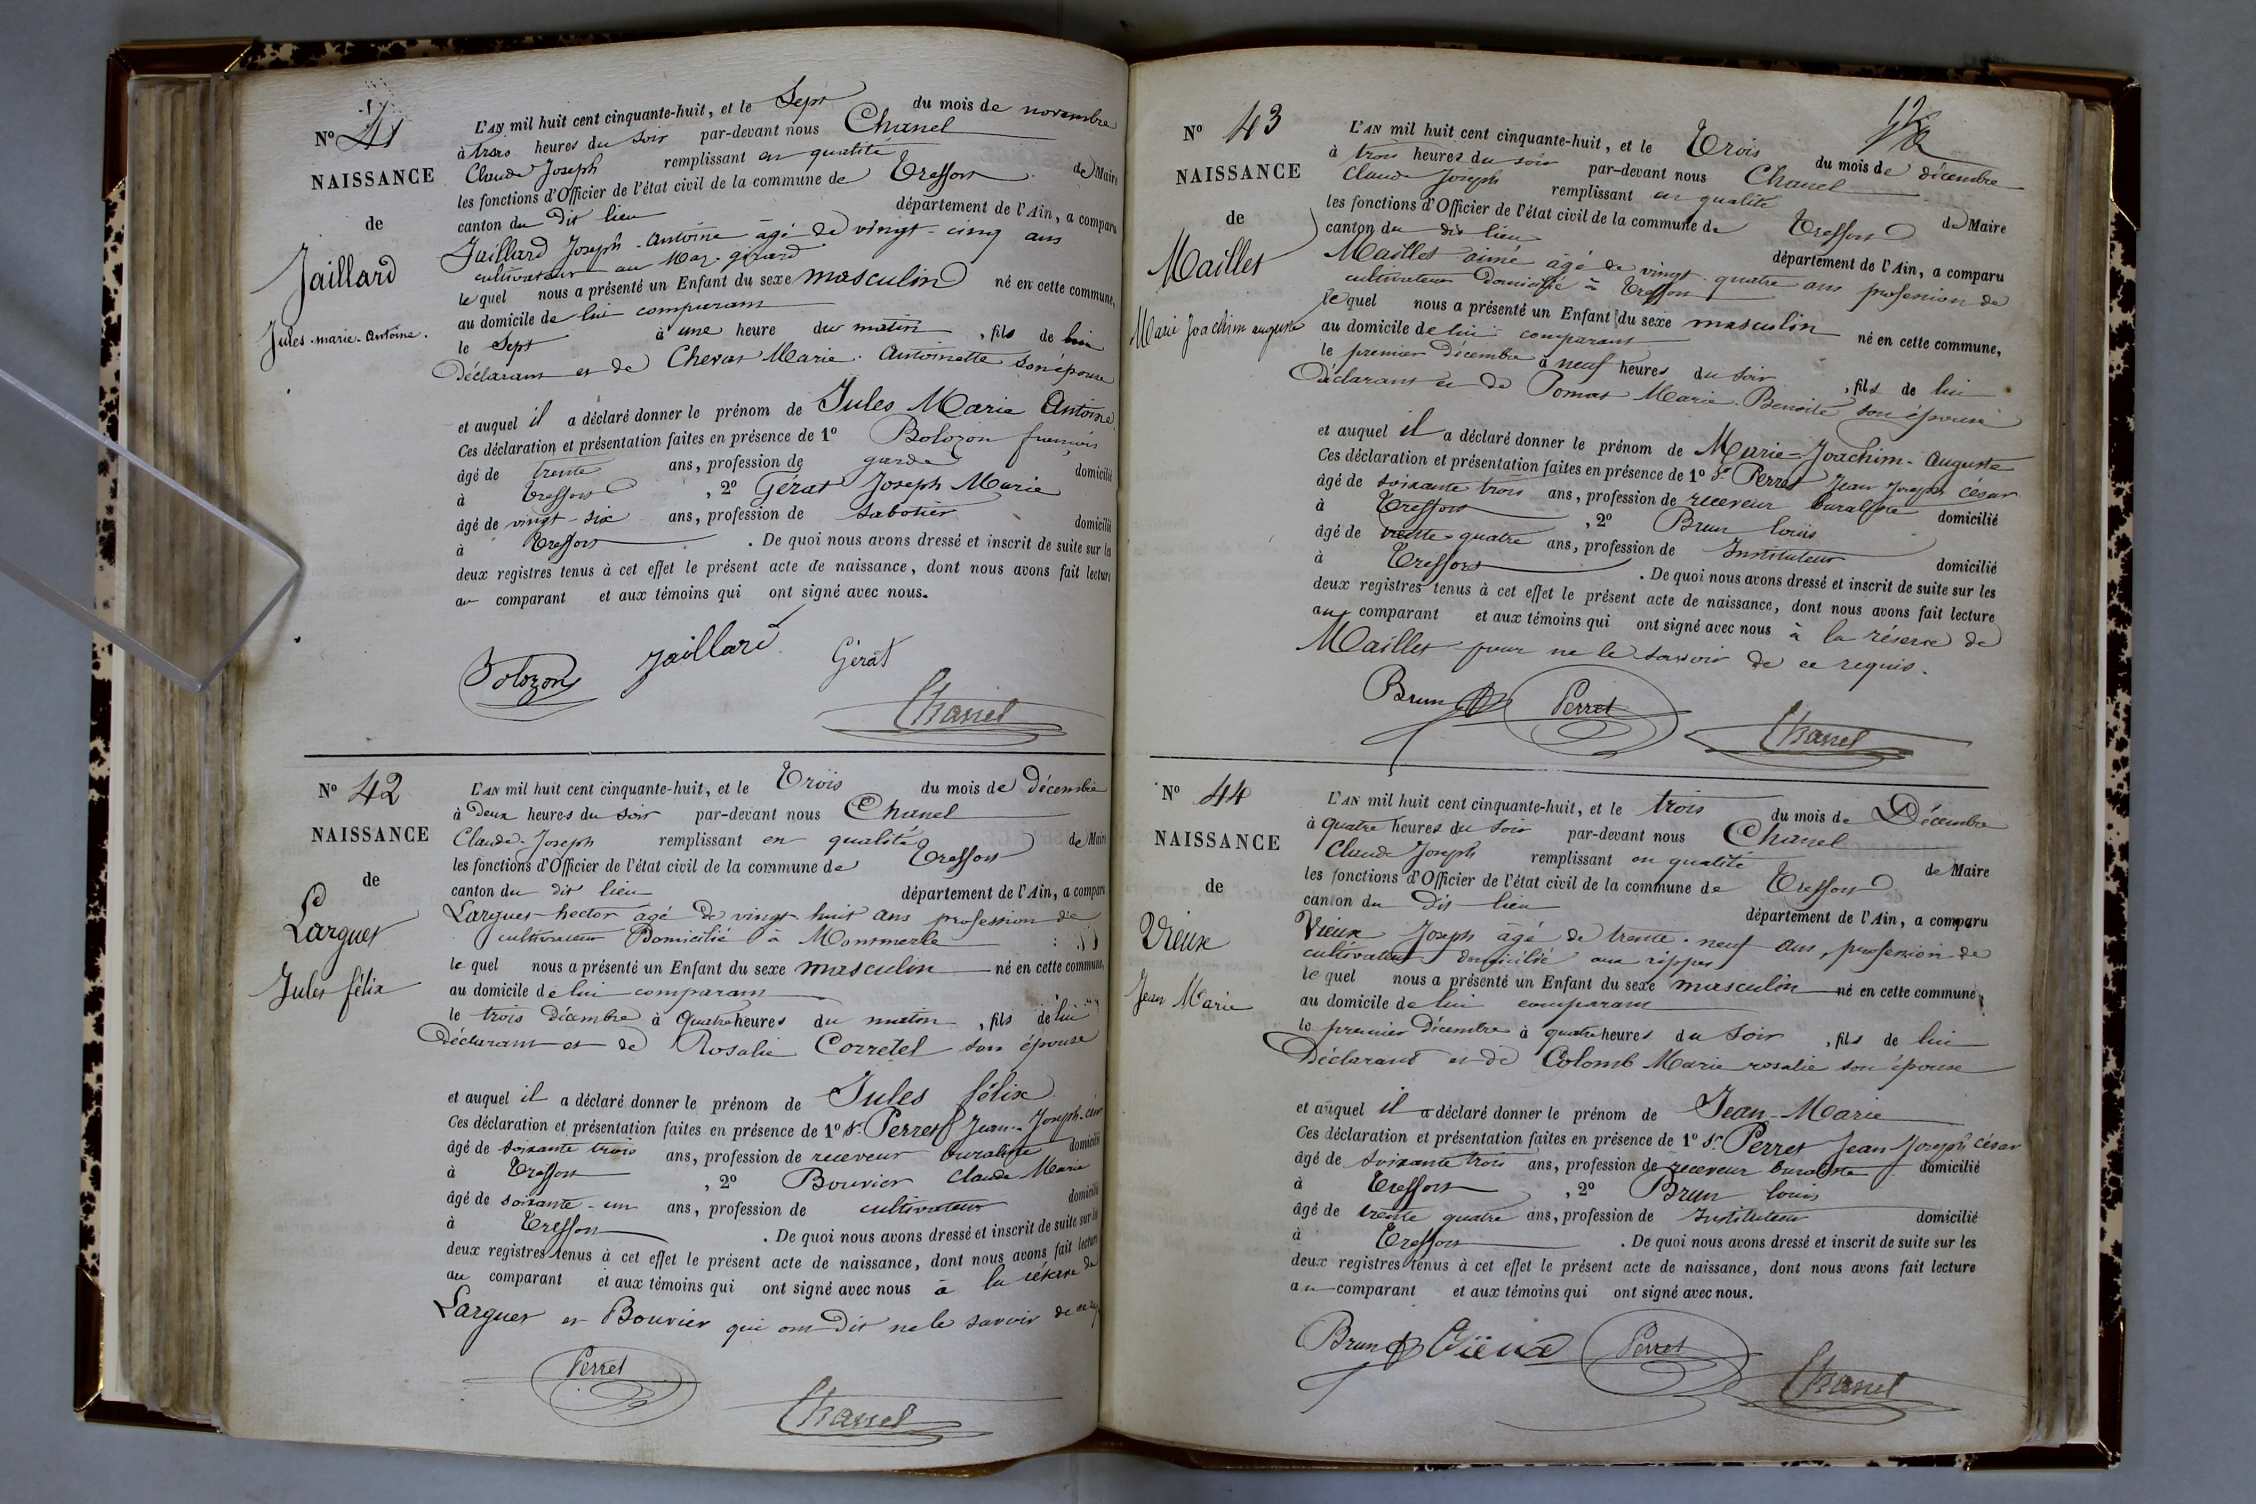 N° 41
NAISSANCE
de
Jaillard
Jules-marie-Antoine.
L'AN mil huit cent cinquante-huit, et le Sept du mois de novembre
à trois heures du soir par-devant nous Chanel
Claude Joseph remplissant en qualité de Maire
les fonctions d'Officier de l'état civil de la commune de Treffort
canton du dit lieu département de l'Ain, a comparu
Jaillard Joseph-Antoine âgé de vingt-cinq ans
cultivateur au girard
le quel nous a présenté un Enfant du sexe masculin né en cette commune,
au domicile de lui comparant
le Sept à une heure du matin, fils de lui
Déclarant et de Chevat Marie Antoinette son épouse
et auquel il a déclaré donner le prénom de Jules Marie Antoine
Ces déclaration et présentation faites en présence de 1° Bolozon françois
âgé de trente ans, profession de garde domicilié
à Treffort, 2° Gérat Joseph Marie
âgé de vingt-six ans, profession de sabotier domicilié
à Treffort. De quoi nous avons dressé et inscrit de suite sur les
deux registres tenus à cet effet le présent acte de naissance, dont nous avons fait lecture
au comparant et aux témoins qui ont signé avec nous.
Bolozon Jaillard Gérat
Chanel
N° 42
NAISSANCE
de
Larguet
Jules félix
L'AN mil huit cent cinquante-huit, et le Trois du mois de Décembre
à Deux heures du soir par-devant nous Chanel
Claude-Joseph remplissant en qualité de Maire
les fonctions d'Officier de l'état civil de la commune de Treffort
canton du dit lieu département de l'Ain, a comparu
Larguet hector âgé de vingt huit ans profession de
cultivateur Domicilié à Montmerle
le quel nous a présenté un Enfant du sexe masculin né en cette commune,
au domicile de lui comparant
le trois Décembre à Quatre heures du matin, fils de lui
Déclarant et de Rosalie Corretel son épouse
et auquel il a déclaré donner le prénom de Jules félix
Ces déclaration et présentation faites en présence de 1° Sr Perret Jean-Joseph-César
âgé de soixante trois ans, profession de receveur buraliste domicilié
à Treffort, 2° Bouvier Claude Marie
âgé de soixante-un ans, profession de cultivateur domicilié
à Treffort. De quoi nous avons dressé et inscrit de suite sur les
deux registres tenus à cet effet le présent acte de naissance, dont nous avons fait lecture
au comparant et aux témoins qui ont signé avec nous à la réserve de
Larguet et Bouvier qui ont Dit ne le savoir de ce
Perret
Chanel
12
N° 43
NAISSANCE
de
Maillet
Marie Joachim auguste
L'AN mil huit cent cinquante-huit, et le Trois du mois de décembre
à trois heures du soir par-devant nous Chanel
Claude Joseph remplissant en qualité de Maire
les fonctions d'Officier de l'état civil de la commune de Treffort
canton du dit lieu département de l'Ain, a comparu
Maillet aimé âgé de vingt-quatre ans profession de
cultivateur Domicilié à Treffort
le quel nous a présenté un Enfant du sexe masculin né en cette commune,
au domicile de lui comparant
le premier Décembre à neuf heures du soir, fils de lui
déclarant et de Pomat Marie Benoite son épouse
et auquel il a déclaré donner le prénom de Marie-Joachim-Auguste
Ces déclaration et présentation faites en présence de 1° Sr Perret Jean Joseph César
âgé de soixante trois ans, profession de receveur buraliste domicilié
à Treffort, 2° Brun louis
âgé de trente-quatre ans, profession de Instituteur domicilié
à Treffort. De quoi nous avons dressé et inscrit de suite sur les
deux registres tenus à cet effet le présent acte de naissance, dont nous avons fait lecture
au comparant et aux témoins qui ont signé avec nous à la réserve de
Maillet pour ne le savoir de ce requis.
Brun Perret
Chanel
N° 44
NAISSANCE
de
Vieux
Jean Marie
L'AN mil huit cent cinquante-huit, et le trois du mois de Décembre
à quatre heures du soir par-devant nous Chanel
Claude Joseph remplissant en qualité de Maire
les fonctions d'Officier de l'état civil de la commune de Treffort
canton du Dit lieu département de l'Ain, a comparu
Vieux Joseph âgé de trente-neuf ans, profession de
cultivateur domicilié aux rippes
le quel nous a présenté un Enfant du sexe masculin né en cette commune,
au domicile de lui comparant
le premier Décembre à quatre heures du soir, fils de lui
Déclarant et de Colomb Marie rosalie son épouse
et auquel il a déclaré donner le prénom de Jean-Marie
Ces déclaration et présentation faites en présence de 1° Sr Perret Jean Joseph César
âgé de soixante trois ans, profession de receveur buraliste domicilié
à Treffort, 2° Brun louis
âgé de trente quatre ans, profession de Instituteur domicilié
à Treffort. De quoi nous avons dressé et inscrit de suite sur les
deux registres tenus à cet effet le présent acte de naissance, dont nous avons fait lecture
au comparant et aux témoins qui ont signé avec nous.
Brun Vieux Perret
Chanel